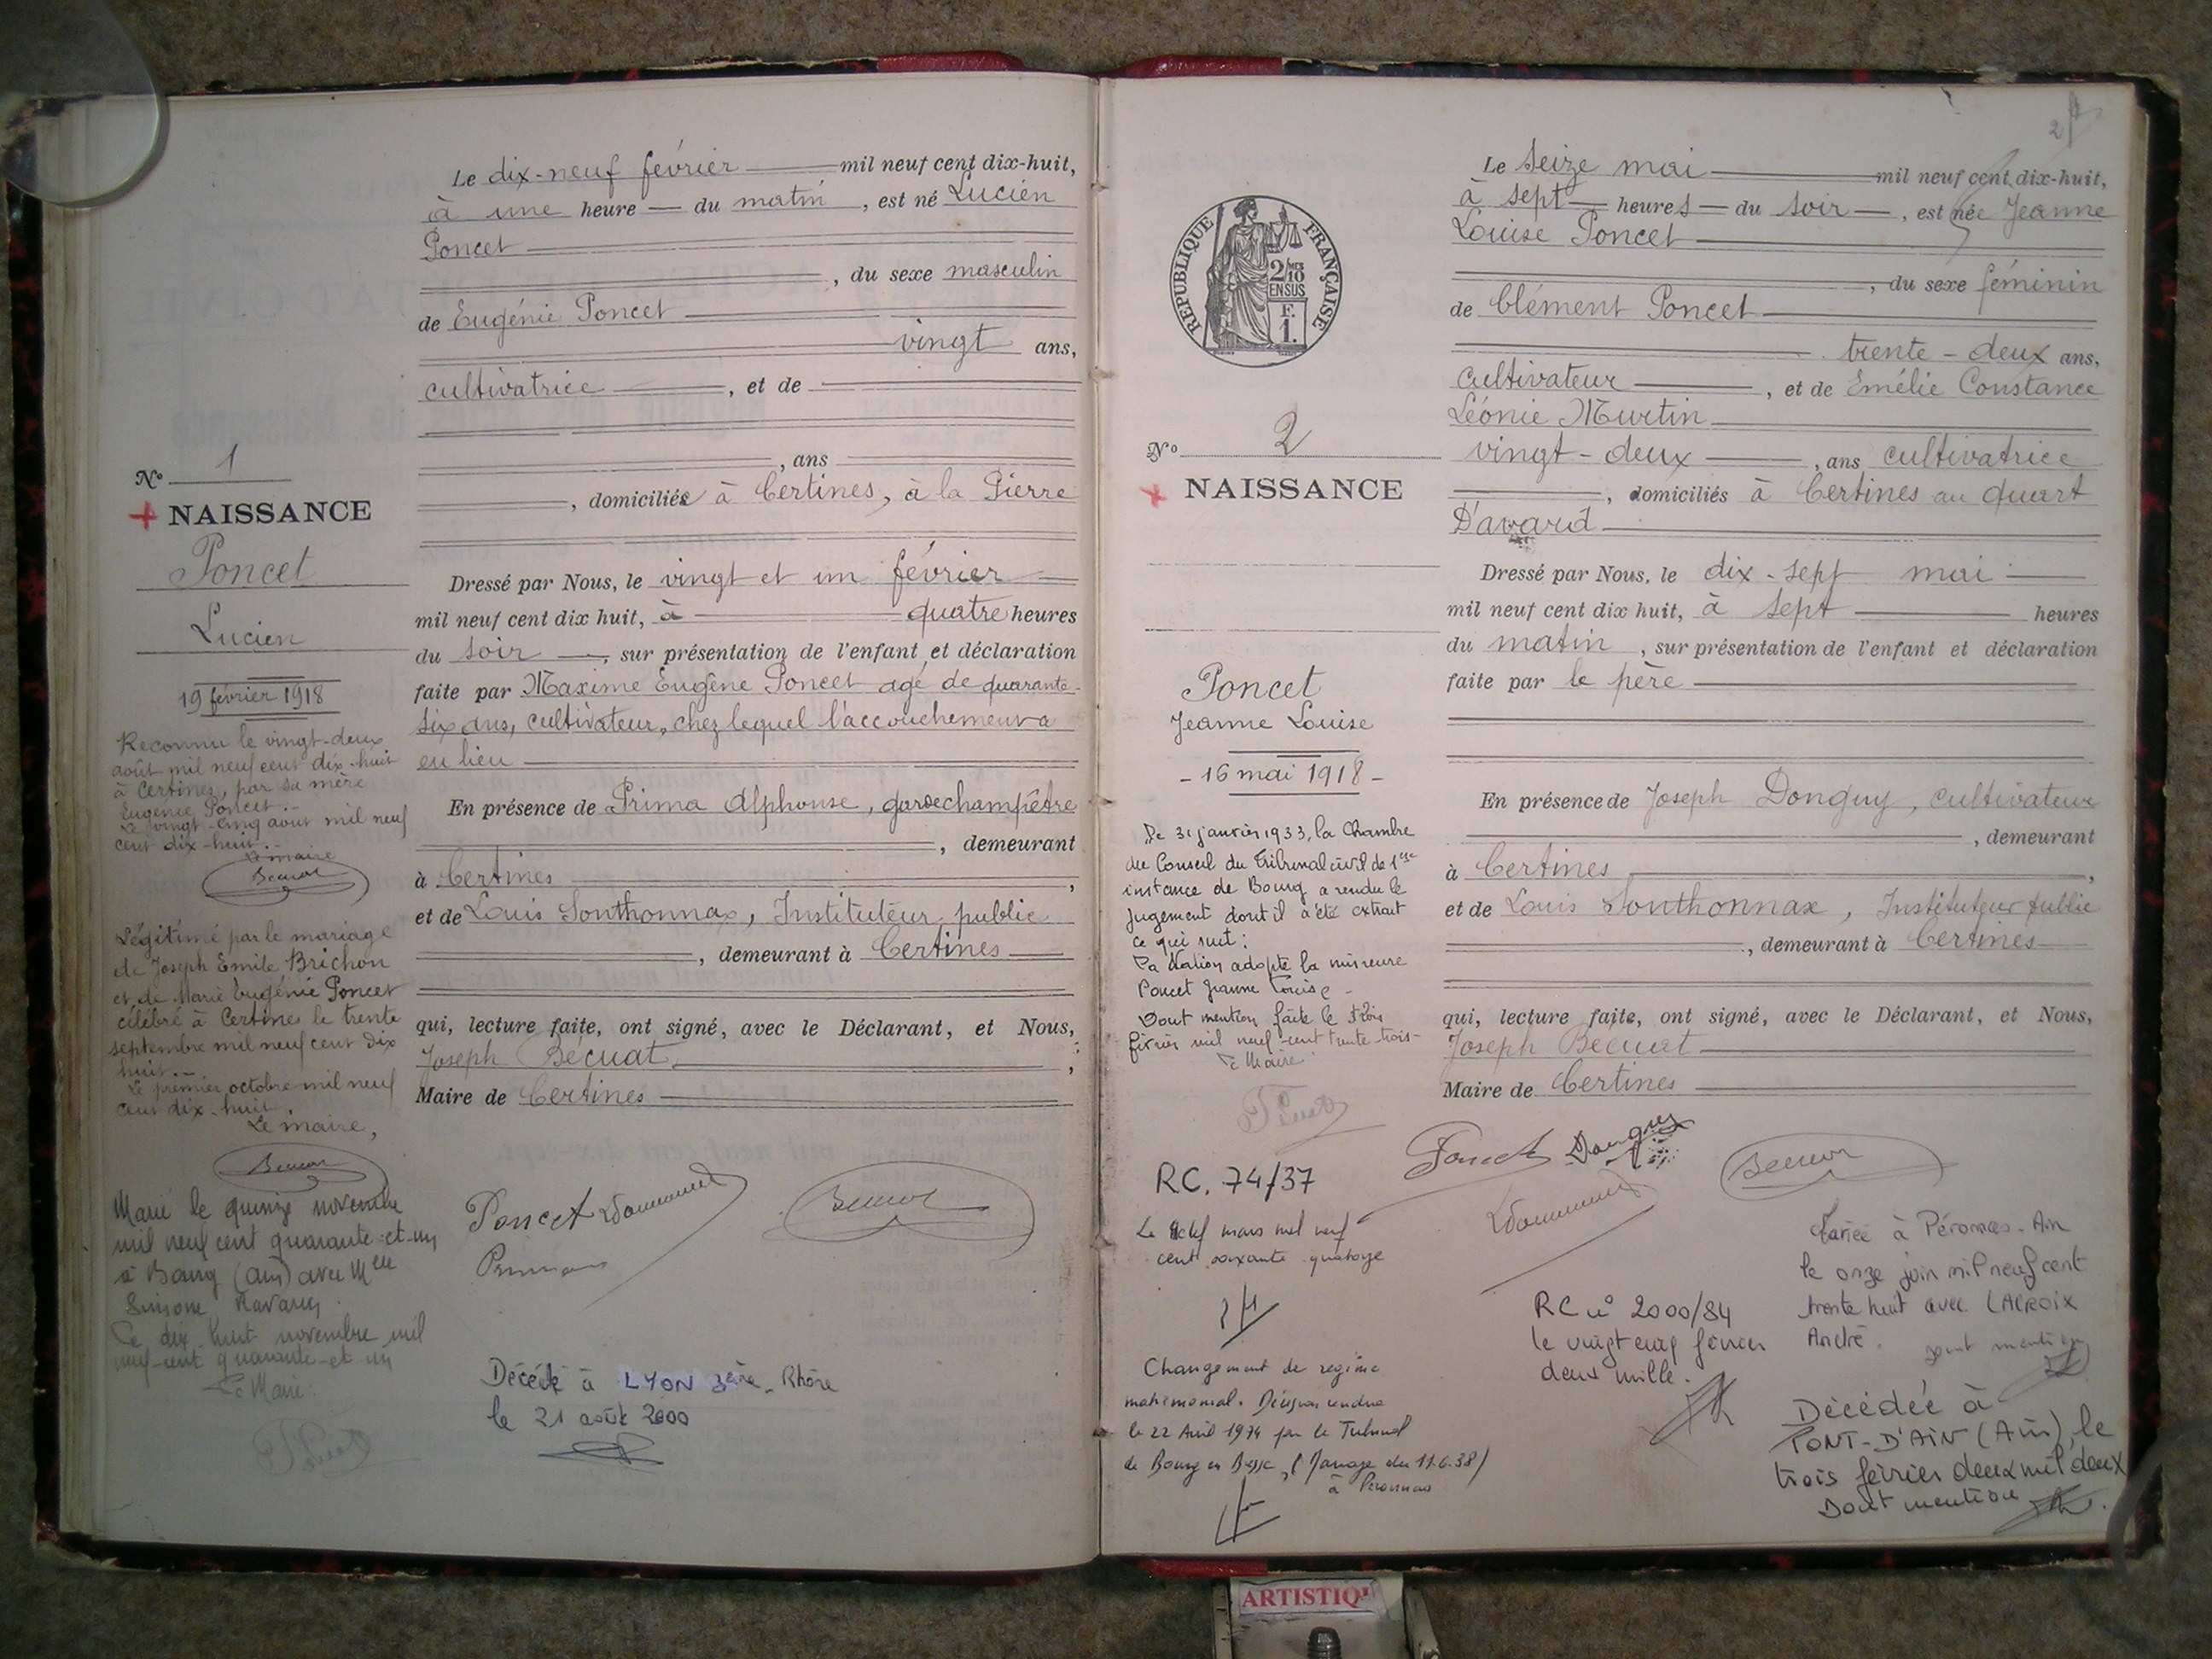 Le dix-neuf février mil neuf cent dix-huit,
à une heure du matin, est né Lucien
Poncet
, du sexe masculin
de Eugénie Poncet
vingt ans,
cultivatrice, et de
, ans
, domiciliés à Certines, à la Pierre
Dressé par Nous, le vingt et un février
mil neuf cent dix huit, à quatre heures
du soir, sur présentation de l'enfant et déclaration
faite par Maxime Eugène Poncet agé de quarante-
six ans, cultivateur, chez lequel l'accouchement a
eu lieu
En présence de Prima Alphonse, garde champêtre
, demeurant
à Certines,
et de Louis Sonthonnax, Instituteur public
, demeurant à Certines
qui, lecture faite, ont signé, avec le Déclarant, et Nous,
Joseph Bécuat,
Maire de Certines
Poncet
Décédé à LYON 3ème - Rhône
le 21 août 2000
No 1
+ NAISSANCE
Poncet
Lucien
19 février 1918
Reconnu le vingt-deux
août mil neuf cent dix-huit
à Certines, par sa mère
Eugénie Poncet.-
Le vingt-cinq aout mil neuf
cent dix-huit.-
Le maire
Becuat
Légitimé par le mariage
de Joseph Emile Brichon
et de Marie Eugénie Poncet
célébré à Certines le trente
septembre mil neuf cent dix
huit.-
Le premier octobre mil neuf
cent dix-huit.
Le maire,
Becuat
Marié le quinze novembre
mil neuf cent quarante-et-un
à Bourg (Ain) avec Melle
Simone
Le dix huit novembre mil
neuf-cent quarante-et un
Le Maire:
2
Le Seize mai mil neuf cent dix-huit,
à sept heures du soir, est née Jeanne
Louise Poncet
, du sexe féminin
de Clément Poncet
trente-deux ans,
cultivateur, et de Emélie Constance
Léonie Murtin
vingt-deux, ans cultivatrice
, domiciliés à Certines au quart
D'avard
Dressé par Nous, le dix-sept mai
mil neuf cent dix huit, à sept heures
du matin, sur présentation de l'enfant et déclaration
faite par le père
En présence de Joseph Donguy, cultivateur
, demeurant
à Certines,
et de Louis Sonthonnax, Instituteur public
, demeurant à Certines
qui, lecture faite, ont signé, avec le Déclarant, et Nous,
Joseph Becuat
Maire de Certines
Poncet Donguy Becuat
RÉPUBLIQUE FRANÇAISE
2/10 MES
EN SUS
F.
1.
No 2
+ NAISSANCE
Poncet
Jeanne Louise
- 16 mai 1918 -
Le 31 janvier 1933, la Chambre
du Conseil du Tribunal civil de 1ere
instance de Bourg a rendu le
jugement dont il a été extrait
ce qui suit:
La Nation adopte la mineure
Poncet Jeanne Louise -
Dont mention faite le trois
février mil neuf-cent trente-trois-
Le Maire:
RC. 74/37
Le mars mil neuf
cent soixante quatorze
Changement de régime
matrimonial. Décision rendue
le 22 Avril 1974 par le Tribunal
de Bourg en Bresse, (Mariage du 11.6.38)
à Péronnas
RC n° 2000/84
le vingt cinq
deux mille.
Mariée à Péronnas - Ain
le onze juin mil neuf cent
trente huit avec LACROIX
André. dont mention
Décédée à
PONT-D'AIN (Ain), le
trois février deux mil deux
Dont mention
ARTISTIQ